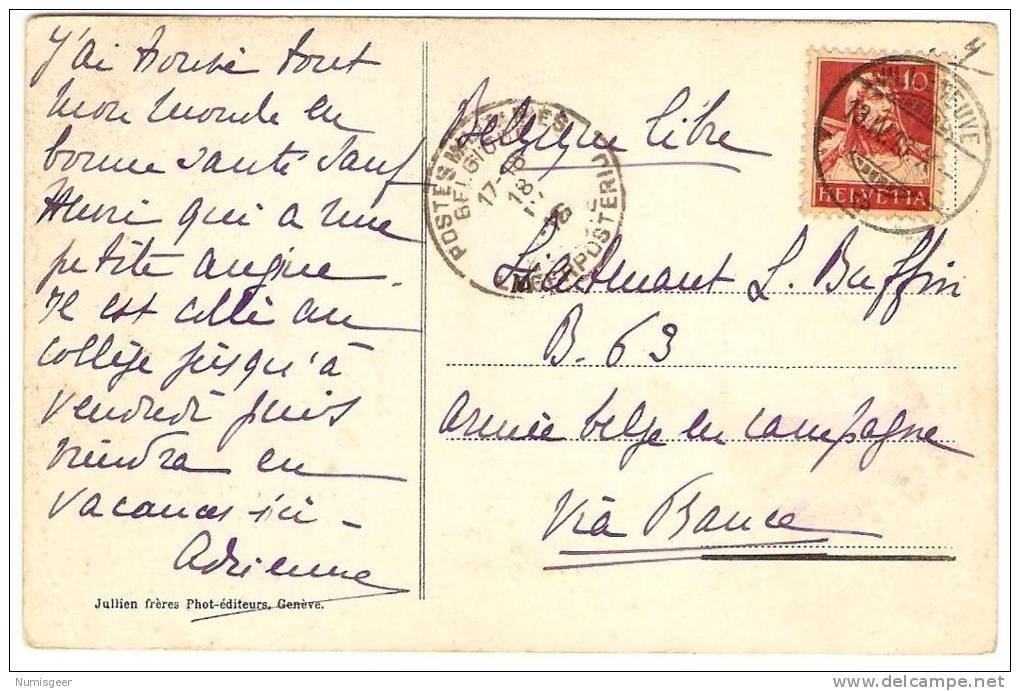 J'ai trouvé tout
mon monde en
bonne santé sauf
Henri qui a une
petite angine
Il est collé au
collège jusqu'à
vendredi puis
viendra en
vacances ici -
Adrienne
Jullien frères Phot-éditeurs, Genève.
Belgique libre
POSTES MILITAIRES
BELGIQUE
17-18
18
Lieutenant L. Buffin
B. 63
Armée belge en campagne
Via France
10
HELVETIA
Numisgeer
www.delcampe.net